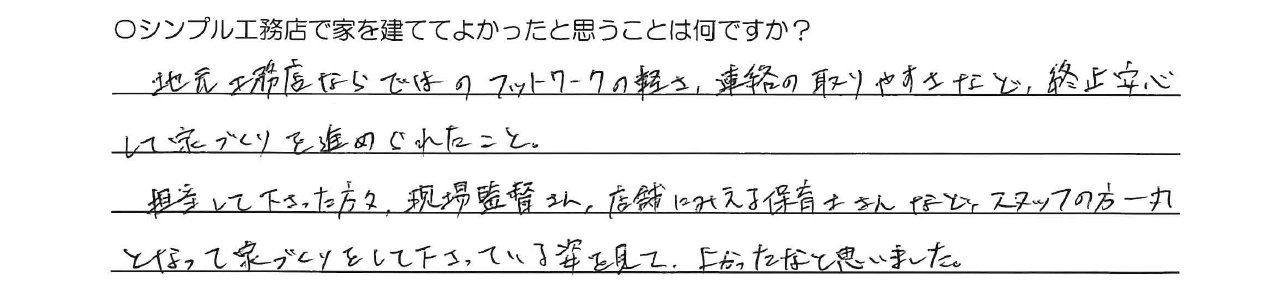 〇シンプル工務店で家を建ててよかったと思うことは何ですか？
地元工務店ならではのフットワークの軽さ、連絡の取りやすさなど、終止安心
して家づくりを進められたこと。
担当して下さった方々、現場監督さん、店舗にみえる保育士さんなど、スタッフの方一丸
となって家づくりをして下さっている姿を見て、よかったなと思いました。